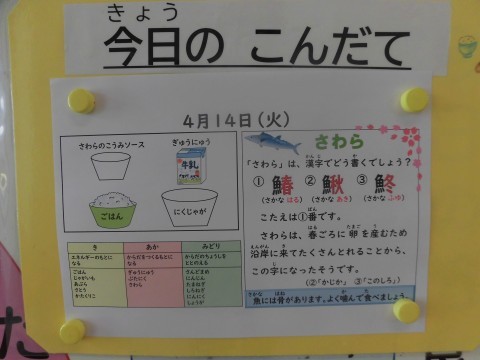 きょう
今日の こんだて
4月14日(火)
さわらのこうみソース
ぎゅうにゅう
牛乳
ごはん
にくじゃが
き
あか
みどり
エネルギーのもとになる
からだをつくるもとになる
からだのちょうしをととのえる
ごはん
じゃがいも
あぶら
さとう
かたくりこ
ぎゅうにゅう
ぶたにく
さわら
さんどまめ
にんじん
たまねぎ
しろねぎ
にんにく
しょうが
さわら
「さわら」は、漢字でどう書くでしょう?
① 鰆 ② 鰍 ③ 鮗
(さかな はる) (さかな あき) (さかな ふゆ)
こたえは①番です。
さわらは、春ごろに卵を産むため
沿岸に来てたくさんとれることから、
この字になったそうです。
(②「かじか」 ③「このしろ」)
魚には骨があります。よく噛んで食べましょう。